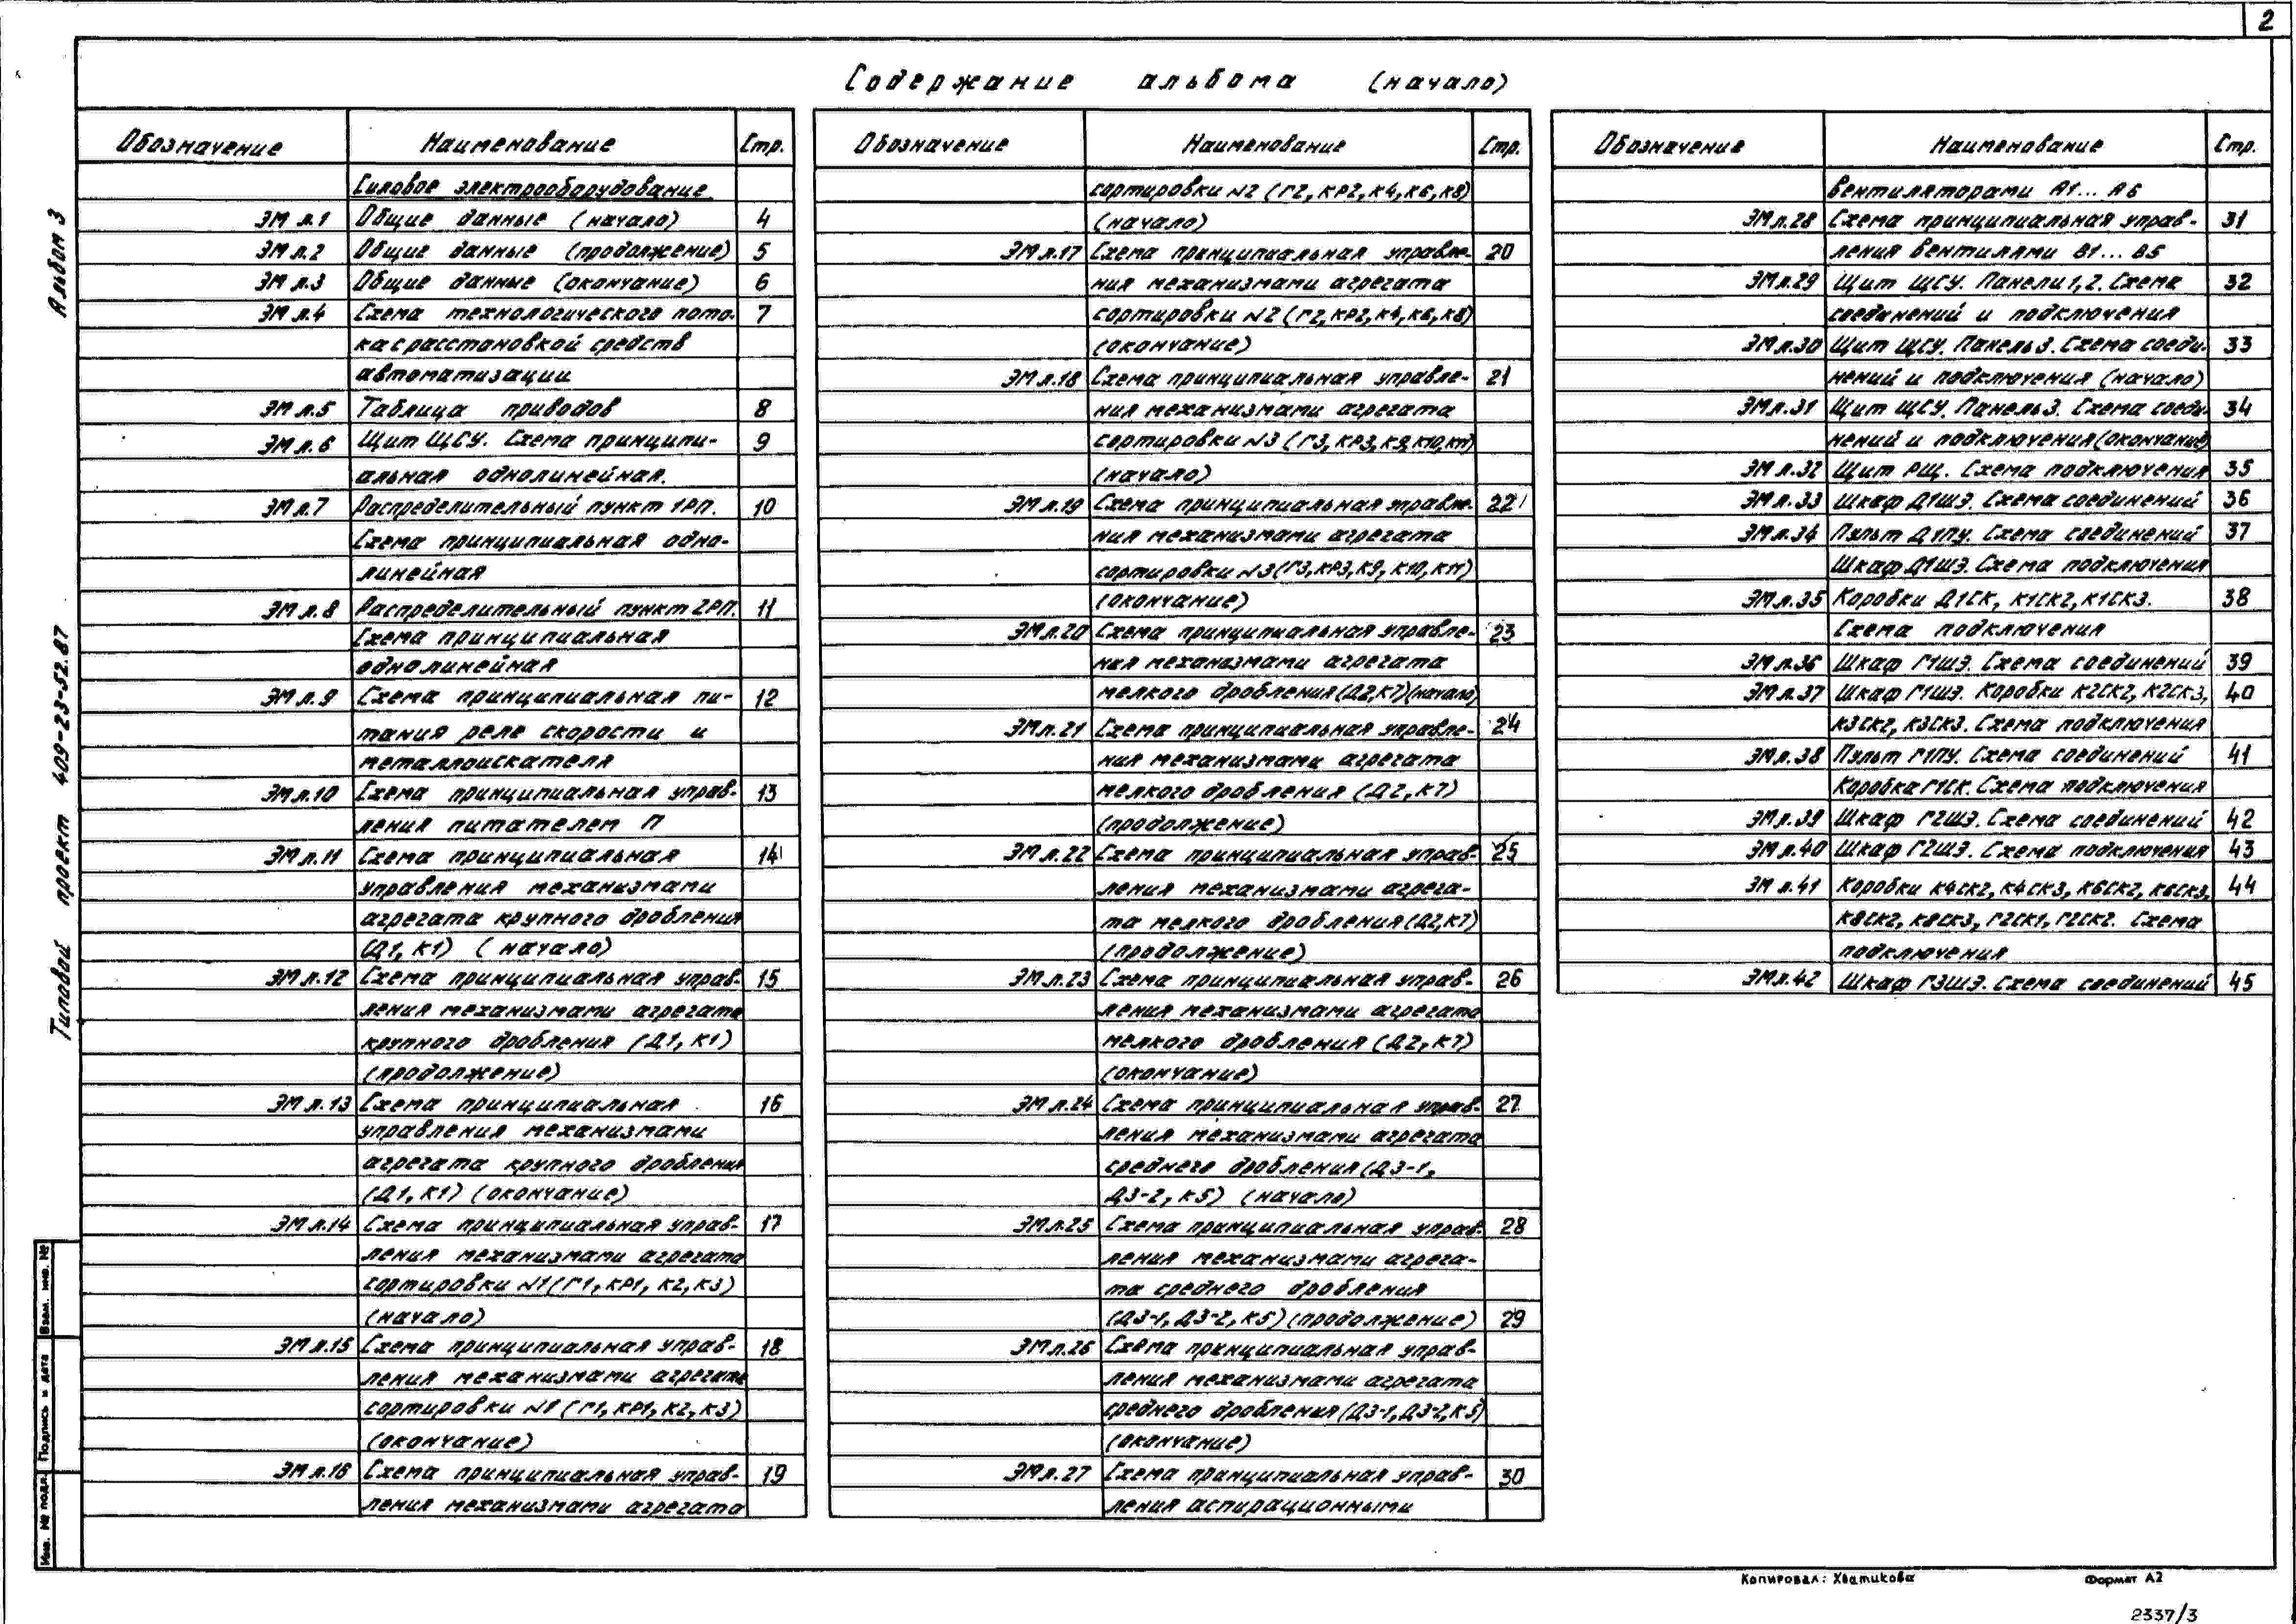 2
Содержание альбома (начало)
Альбом 3
Типовой проект 409-23-52.87
Обозначение Наименование Стр.
Силовое электрооборудование
ЭМ л.1 Общие данные (начало) 4
ЭМ л.2 Общие данные (продолжение) 5
ЭМ л.3 Общие данные (окончание) 6
ЭМ л.4 Схема технологического пото- 7
ка с расстановкой средств
автоматизации
ЭМ л.5 Таблица приводов 8
ЭМ л.6 Щит ЩСУ. Схема принципи- 9
альная однолинейная.
ЭМ л.7 Распределительный пункт 1РП. 10
Схема принципиальная одно-
линейная
ЭМ л.8 Распределительный пункт 2РП. 11
Схема принципиальная
однолинейная
ЭМ л.9 Схема принципиальная пи- 12
тания реле скорости и
металлоискателя
ЭМ л.10 Схема принципиальная управ- 13
ления питателем П
ЭМ л.11 Схема принципиальная 14
управления механизмами
агрегата крупного дробления
(Д1, К1) (начало)
ЭМ л.12 Схема принципиальная управ- 15
ления механизмами агрегата
крупного дробления (Д1, К1)
(продолжение)
ЭМ л.13 Схема принципиальная 16
управления механизмами
агрегата крупного дробления
(Д1, К1) (окончание)
ЭМ л.14 Схема принципиальная управ- 17
ления механизмами агрегата
сортировки N1 (Г1, КР1, К2, К3)
(начало)
ЭМ л.15 Схема принципиальная управ- 18
ления механизмами агрегата
сортировки N1 (Г1, КР1, К2, К3)
(окончание)
ЭМ л.16 Схема принципиальная управ- 19
ления механизмами агрегата
Обозначение Наименование Стр.
сортировки N2 (Г2, КР2, К4, К6, К8)
(начало)
ЭМ л.17 Схема принципиальная управле- 20
ния механизмами агрегата
сортировки N2 (Г2, КР2, К4, К6, К8)
(окончание)
ЭМ л.18 Схема принципиальная управле- 21
ния механизмами агрегата
сортировки N3 (Г3, КР3, К9, К10, К11)
(начало)
ЭМ л.19 Схема принципиальная управле- 22
ния механизмами агрегата
сортировки N3 (Г3, КР3, К9, К10, К11)
(окончание)
ЭМ л.20 Схема принципиальная управле- 23
ния механизмами агрегата
мелкого дробления (Д2, К7) (начало)
ЭМ л.21 Схема принципиальная управле- 24
ния механизмами агрегата
мелкого дробления (Д2, К7)
(продолжение)
ЭМ л.22 Схема принципиальная управ- 25
ления механизмами агрега-
та мелкого дробления (Д2, К7)
(продолжение)
ЭМ л.23 Схема принципиальная управ- 26
ления механизмами агрегата
мелкого дробления (Д2, К7)
(окончание)
ЭМ л.24 Схема принципиальная управ- 27
ления механизмами агрегата
среднего дробления (Д3-1,
Д3-2, К5) (начало)
ЭМ л.25 Схема принципиальная управ- 28
ления механизмами агрега-
та среднего дробления
(Д3-1, Д3-2, К5) (продолжение) 29
ЭМ л.26 Схема принципиальная управ-
ления механизмами агрегата
среднего дробления (Д3-1, Д3-2, К5)
(окончание)
ЭМ л.27 Схема принципиальная управ- 30
ления аспирационными
Обозначение Наименование Стр.
вентиляторами А1... А6
ЭМ л.28 Схема принципиальная управ- 31
ления вентилями В1... В5
ЭМ л.29 Щит ЩСУ. Панели 1, 2. Схема 32
соединений и подключения
ЭМ л.30 Щит ЩСУ. Панель 3. Схема соеди- 33
нений и подключения (начало)
ЭМ л.31 Щит ЩСУ. Панель 3. Схема соеди- 34
нений и подключения (окончание)
ЭМ л.32 Щит РЩ. Схема подключения 35
ЭМ л.33 Шкаф Д1ШЭ. Схема соединений 36
ЭМ л.34 Пульт Д1ПУ. Схема соединений 37
Шкаф Д1ШЭ. Схема подключения
ЭМ л.35 Коробки Д1СК, К1СК2, К1СК3. 38
Схема подключения
ЭМ л.36 Шкаф Г1ШЭ. Схема соединений 39
ЭМ л.37 Шкаф Г1ШЭ. Коробки К2СК2, К2СК3, 40
К3СК2, К3СК3. Схема подключения
ЭМ л.38 Пульт Г1ПУ. Схема соединений 41
Коробка Г1СК. Схема подключения
ЭМ л.39 Шкаф Г2ШЭ. Схема соединений 42
ЭМ л.40 Шкаф Г2ШЭ. Схема подключения 43
ЭМ л.41 Коробки К4СК2, К4СК3, К6СК2, К6СК3, 44
К8СК2, К8СК3, Г2СК1, Г2СК2. Схема
подключения
ЭМ л.42 Шкаф Г3ШЭ. Схема соединений 45
Взам. инв. №
Подпись и дата
Инв. № подл.
Копировал: Хватикова Формат А2
2337/3